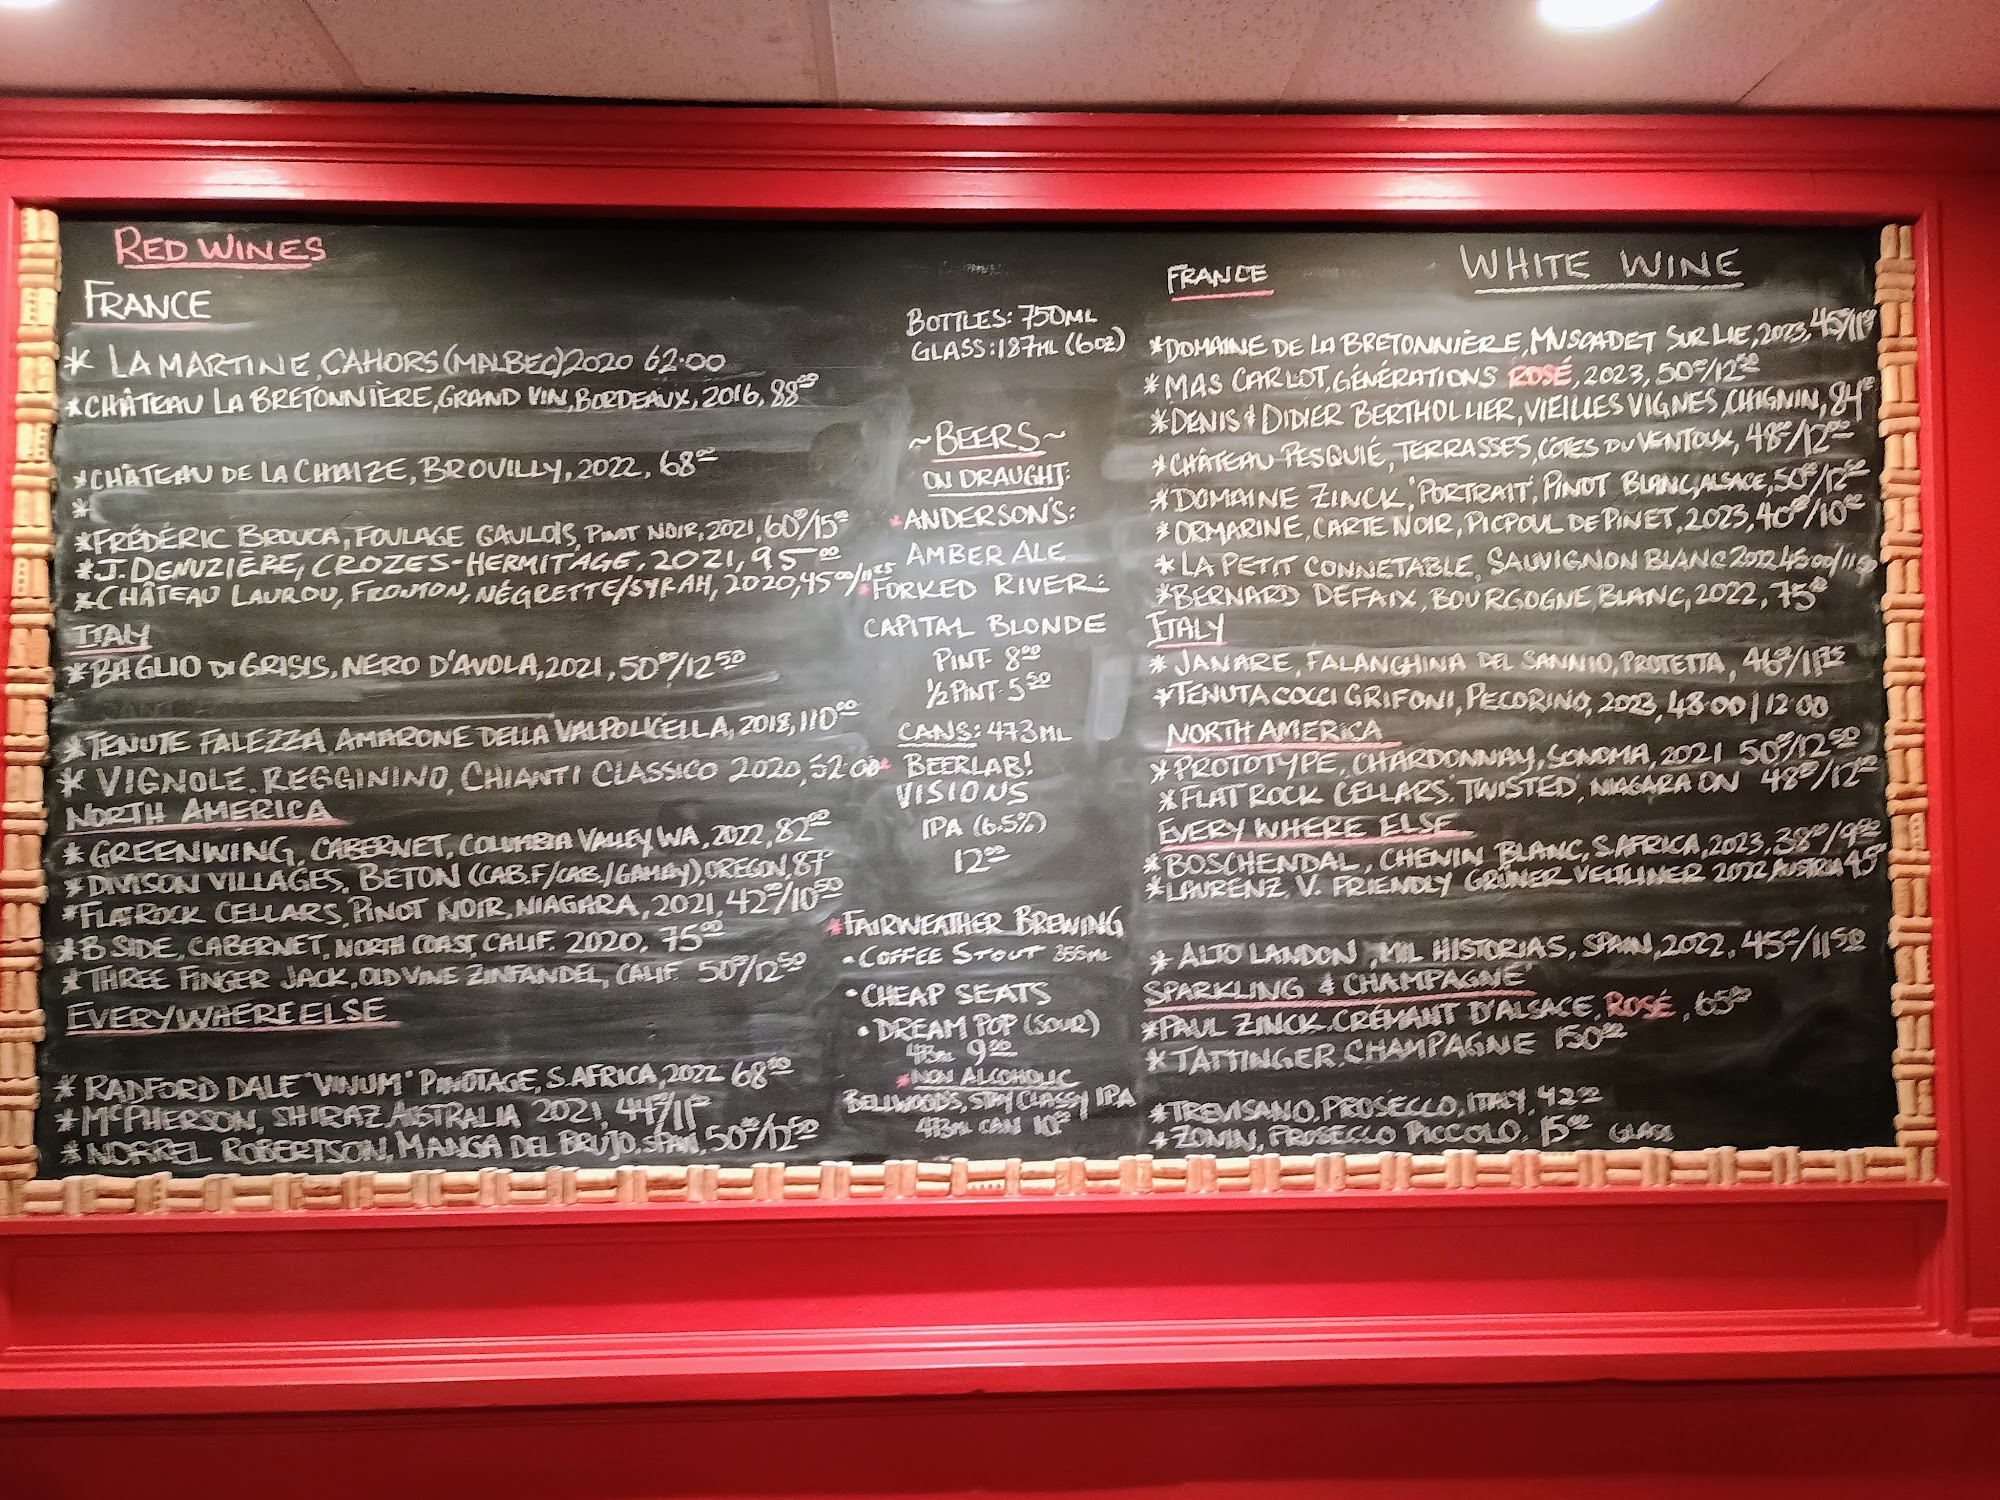 RED WINES
FRANCE
* LAMARTINE, CAHORS (MALBEC) 2020 62.00
*CHÂTEAU LA BRETONNIÈRE, GRAND VIN, BORDEAUX, 2016, 88⁰⁰
*CHÂTEAU DE LA CHAIZE, BROUILLY, 2022, 68⁰⁰
*
*FRÉDÉRIC BROUCA, FOULAGE GAULOIS, PINOT NOIR, 2021, 60⁰⁰/15⁰⁰
*J. DENUZIÈRE, CROZES-HERMITAGE, 2021, 95⁰⁰
*CHÂTEAU LAUROU, FRONTON, NÉGRETTE/SYRAH, 2020, 45⁰⁰/11²⁵
ITALY
*BAGLIO DI GRISIS, NERO D'AVOLA, 2021, 50⁰⁰/12⁵⁰
*TENUTE FALEZZA AMARONE DELLA VALPOLICELLA, 2018, 110⁰⁰
* VIGNOLE, REGGININO, CHIANTI CLASSICO 2020, 52.00
NORTH AMERICA
*GREENWING, CABERNET, COLUMBIA VALLEY, WA, 2022, 82⁰⁰
*DIVISON VILLAGES, BETON (CAB.F/CAB./GAMAY), OREGON, 87
*FLATROCK CELLARS, PINOT NOIR, NIAGARA, 2021, 42⁰⁰/10⁵⁰
*B SIDE, CABERNET, NORTH COAST, CALIF. 2020, 75⁰⁰
*THREE FINGER JACK, OLD VINE ZINFANDEL, CALIF. 50⁰⁰/12⁵⁰
EVERYWHERE ELSE
* RADFORD DALE "VINUM" PINOTAGE, S.AFRICA, 2022 68⁰⁰
*MCPHERSON, SHIRAZ AUSTRALIA 2021, 44⁰⁰/11⁰⁰
*NORREL ROBERTSON, MANGA DEL BRUJO, SPAIN, 50⁰⁰/12⁵⁰
BOTTLES: 750ML
GLASS: 187ML (6OZ)
~BEERS~
ON DRAUGHT:
*ANDERSON'S:
AMBER ALE
*FORKED RIVER:
CAPITAL BLONDE
PINT- 8⁰⁰
½ PINT- 5⁵⁰
CANS: 473ML
* BEERLAB!
VISIONS
IPA (6.5%)
12⁰⁰
*FAIRWEATHER BREWING
• COFFEE STOUT 355ML
• CHEAP SEATS
• DREAM POP (SOUR)
473ML 9⁰⁰
*NON ALCOHOLIC
BELLWOODS, STAY CLASSY IPA
473ML CAN 10⁰⁰
WHITE WINE
FRANCE
*DOMAINE DE LA BRETONNIÈRE, MUSCADET SUR LIE, 2023, 45⁰⁰/11
*MAS CARLOT, GÉNÉRATIONS ROSÉ, 2023, 50⁰⁰/12⁵⁰
*DENIS & DIDIER BERTHOLLIER, VIEILLES VIGNES, CHIGNIN, 84
*CHÂTEAU PESQUIÉ, TERRASSES, CÔTES DU VENTOUX, 48⁰⁰/12⁰⁰
*DOMAINE ZINCK, 'PORTRAIT', PINOT BLANC, ALSACE, 50⁰⁰/12⁵⁰
*ORMARINE, CARTE NOIR, PICPOUL DE PINET, 2023, 40⁰⁰/10⁰⁰
*LA PETIT CONNETABLE, SAUVIGNON BLANC 2022 45.00/11.50
*BERNARD DEFAIX, BOURGOGNE BLANC, 2022, 75⁰⁰
ITALY
* JANARE, FALANGHINA DEL SANNIO, PROTETTA, 46⁰⁰/11
*TENUTA COCCI GRIFONI, PECORINO, 2023, 48.00 | 12.00
NORTH AMERICA
*PROTOTYPE, CHARDONNAY, SONOMA, 2021 50⁰⁰/12⁵⁰
*FLAT ROCK CELLARS, 'TWISTED', NIAGARA ON 48⁰⁰/12⁰⁰
EVERYWHERE ELSE
*BOSCHENDAL, CHENIN BLANC, S.AFRICA, 2023, 38⁰⁰/9⁵⁰
*LAURENZ. V. FRIENDLY GRÜNER VELTLINER 2022 AUSTRIA 45
* ALTO LANDON, MIL HISTORIAS, SPAIN, 2022, 45⁰⁰/11⁵⁰
SPARKLING & CHAMPAGNE
*PAUL ZINCK, CRÉMANT D'ALSACE, ROSÉ, 65⁰⁰
*TATTINGER, CHAMPAGNE 150⁰⁰
*TREVISANO, PROSECCO, ITALY, 42⁰⁰
*ZONIN, PROSECCO PICCOLO, 15⁰⁰ GLASS